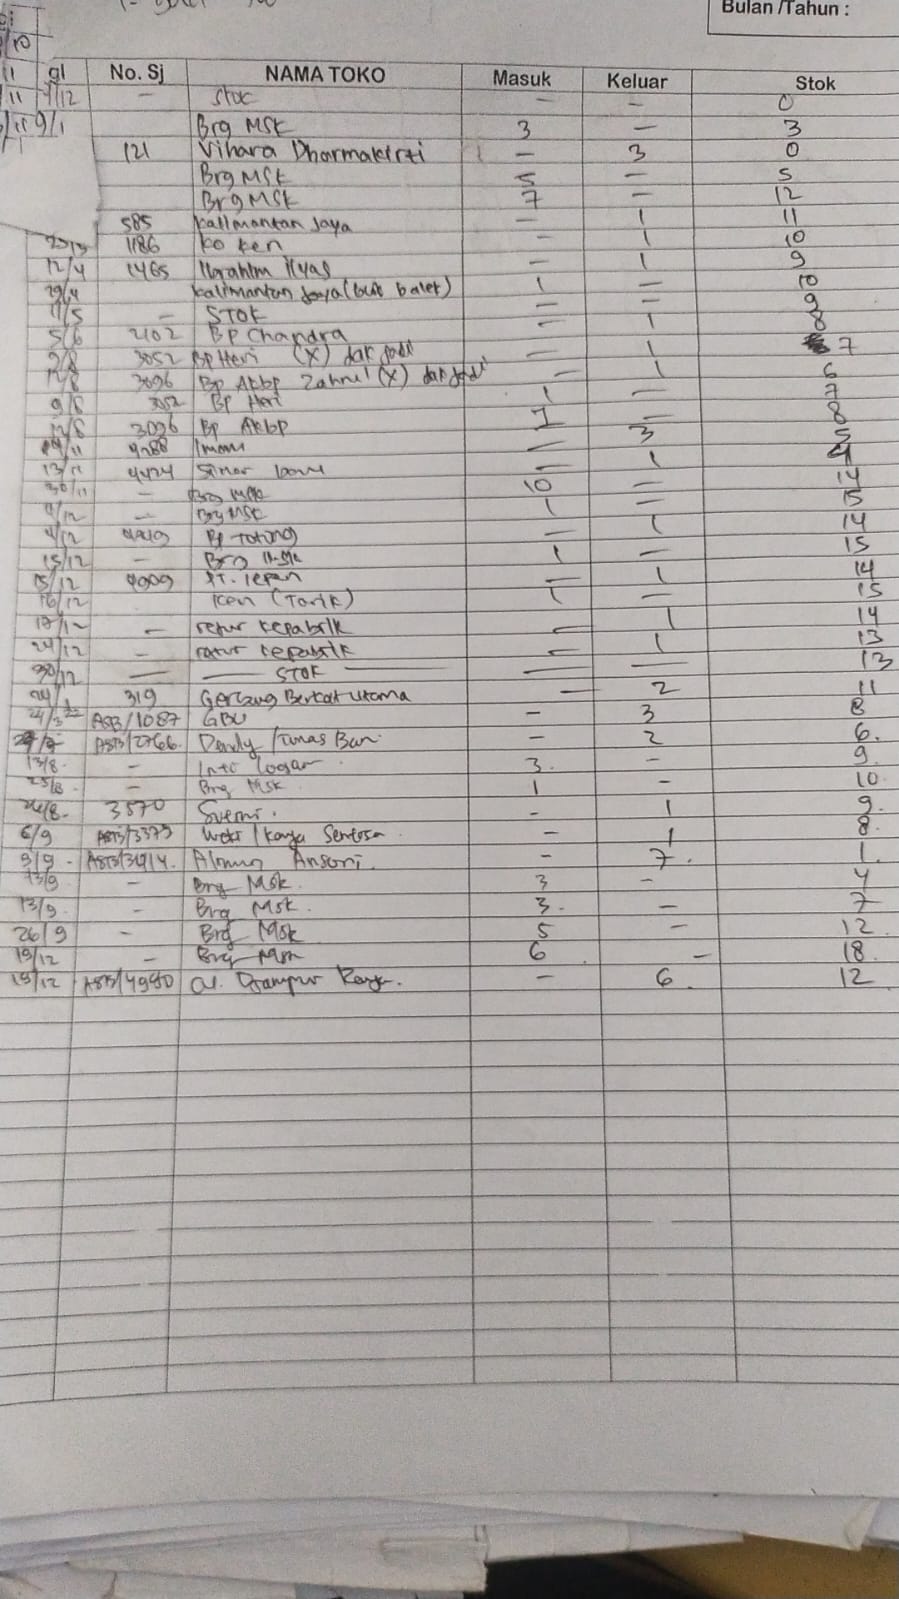 Bulan /Tahun :
gl No. Sj NAMA TOKO Masuk Keluar Stok
/12 — Stok — — 0
9/1 Brg MSK 3 — 3
121 Vihara Dharmakirti — 3 0
Brg MSK 5 — 5
Brg MSK 7 — 12
585 Kalimantan Jaya — 1 11
1186 ko ken — 1 10
12/4 1465 Ibrahim Ilyas — 1 9
29/4 Kalimantan Jaya (but balek) 1 — 10
11/5 — STOK — — 9
5/6 2102 BP Chandra — 1 8
9/8 3052 BP Heri (X) dak jadi — 1 7
12/8 3096 BP Akbp Zahrul (X) dak jadi — 1 6
9/8 3052 BP Heri 1 — 7
12/8 3096 BP Akbp 1 — 8
/11 4288 Imam — 3 5
13/11 4424 Sinar baru — 1 4
30/11 — Brg MSK 10 — 14
4/12 — Brg MSK 1 — 15
4/12 BP Totong — 1 14
15/12 — Brg MSK 1 — 15
15/12 4909 PT. Tepan — 1 14
16/12 Ken (Tarik) 1 — 15
17/12 — retur kepabrik — 1 14
24/12 — retur kepabrik — 1 13
30/12 — STOK — — 13
24/1 319 Gerbang Berkat Utama — 2 11
24/3 22 ASB/1087 GBU — 3 8
ASB/2766. Dendy /Tunas Baru — 2 6.
13/8. — Into Logam 3. — 9.
25/8. — Brg Msk 1 — 10.
26/8. 3570 Suerni. — 1 9.
6/9 ASB/3373 Weki / Karya Sentosa — 1 8.
9/9 - ASB/3414. Ansori. — 7. 1.
13/9 — Brg Msk. 3 — 4
13/9. — Brg Msk. 3. — 7
26/9 — Brg Msk 5 — 12
19/12 — Brg Msk 6 — 18.
19/12 ASB/4980 CV. Karya. — 6. 12